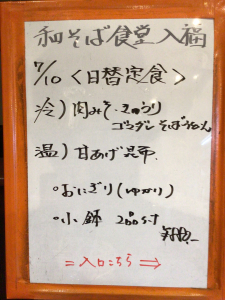 和そば食堂入福
7/10 〈日替定食〉
冷) 肉みそ・きゅうり
ゴウダン そばうどん
温) 甘あげ昆布
・おにぎり(ゆかり)
・小鉢
＝入口こちら⇒